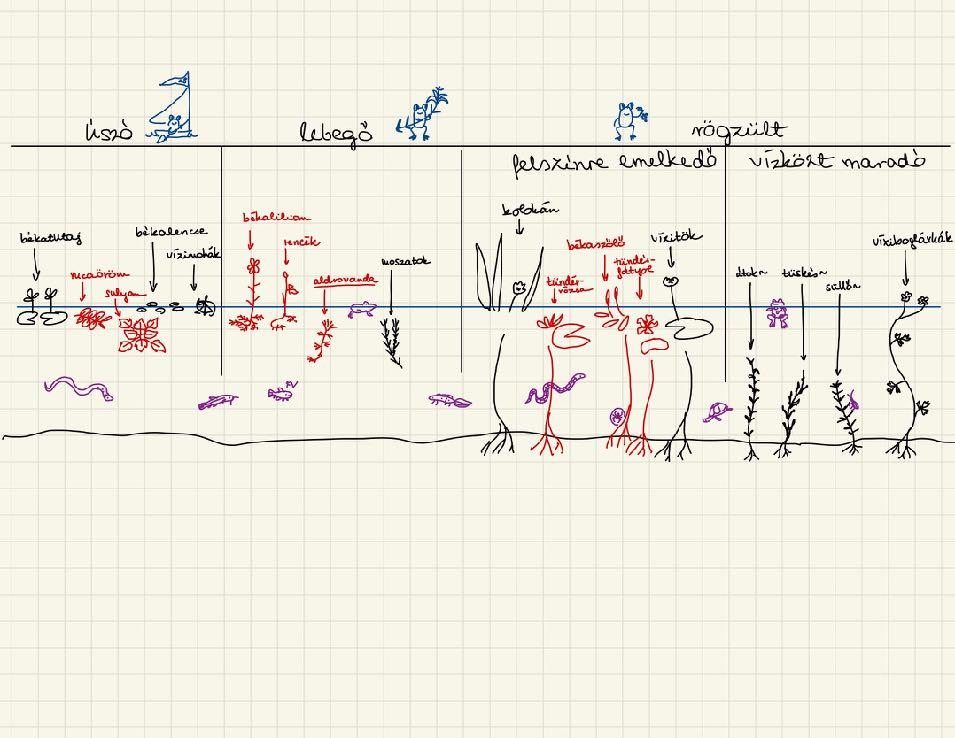 úszó
lebegő
rögzült
felszínre emelkedő
vízközt maradó
békatutaj
rucaöröm
sulyom
békalencse
vízimohák
békaliliom
rencék
aldrovanda
moszatok
kolokán
tündér-
rózsa
békaszőlő
tündér-
fátyol
vízitök
süllőh
víziboglárkák